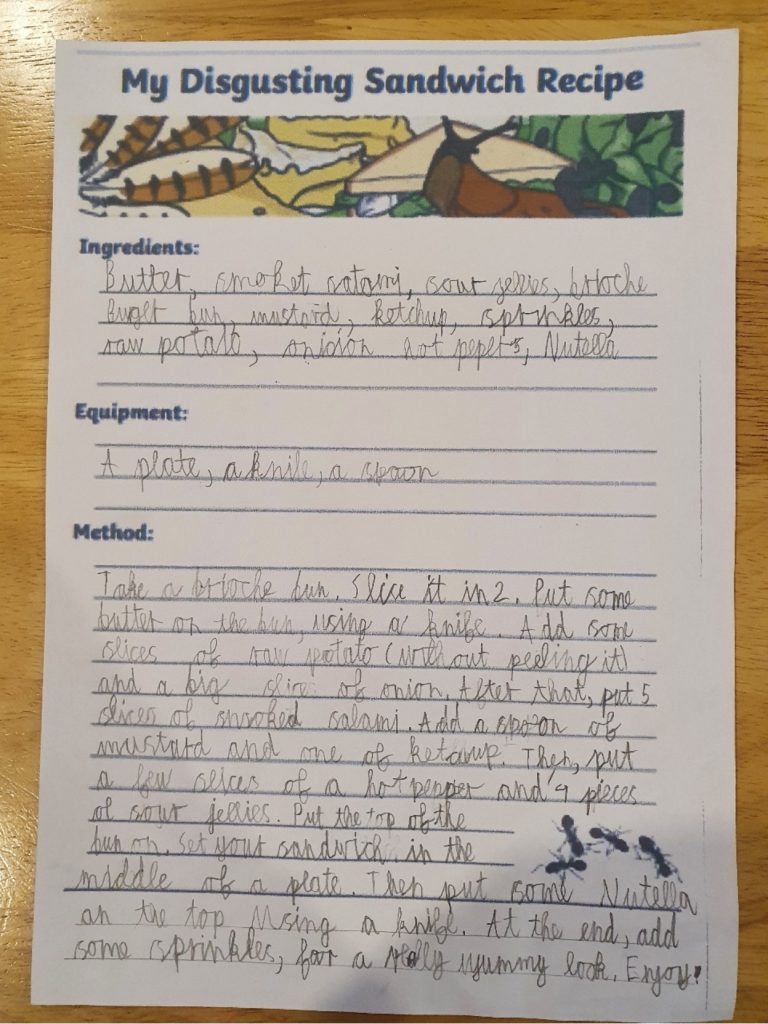 My Disgusting Sandwich Recipe
Ingredients:
Butter, smoket salami, sour jellies, brioche
buger bun, mustard, ketchup, sprinkles,
raw potato, onioion hot pepers, Nutella
Equipment:
A plate, a knife, a spoon
Method:
Take a brioche bun. Slice it in 2. Put some
butter on the bun, using a knife. Add some
slices of raw potato (without peeling it)
and a big slice of onion. After that, put 5
slices of smoked salami. Add a spoon of
mustard and one of ketchup. Then, put
a few slices of a hot pepper and 4 pieces
of sour jellies. Put the top of the
bun on. Set your sandwich in the
middle of a plate. Then put some Nutella
on the top using a knife. At the end, add
some sprinkles, for a really yummy look. Enjoy!